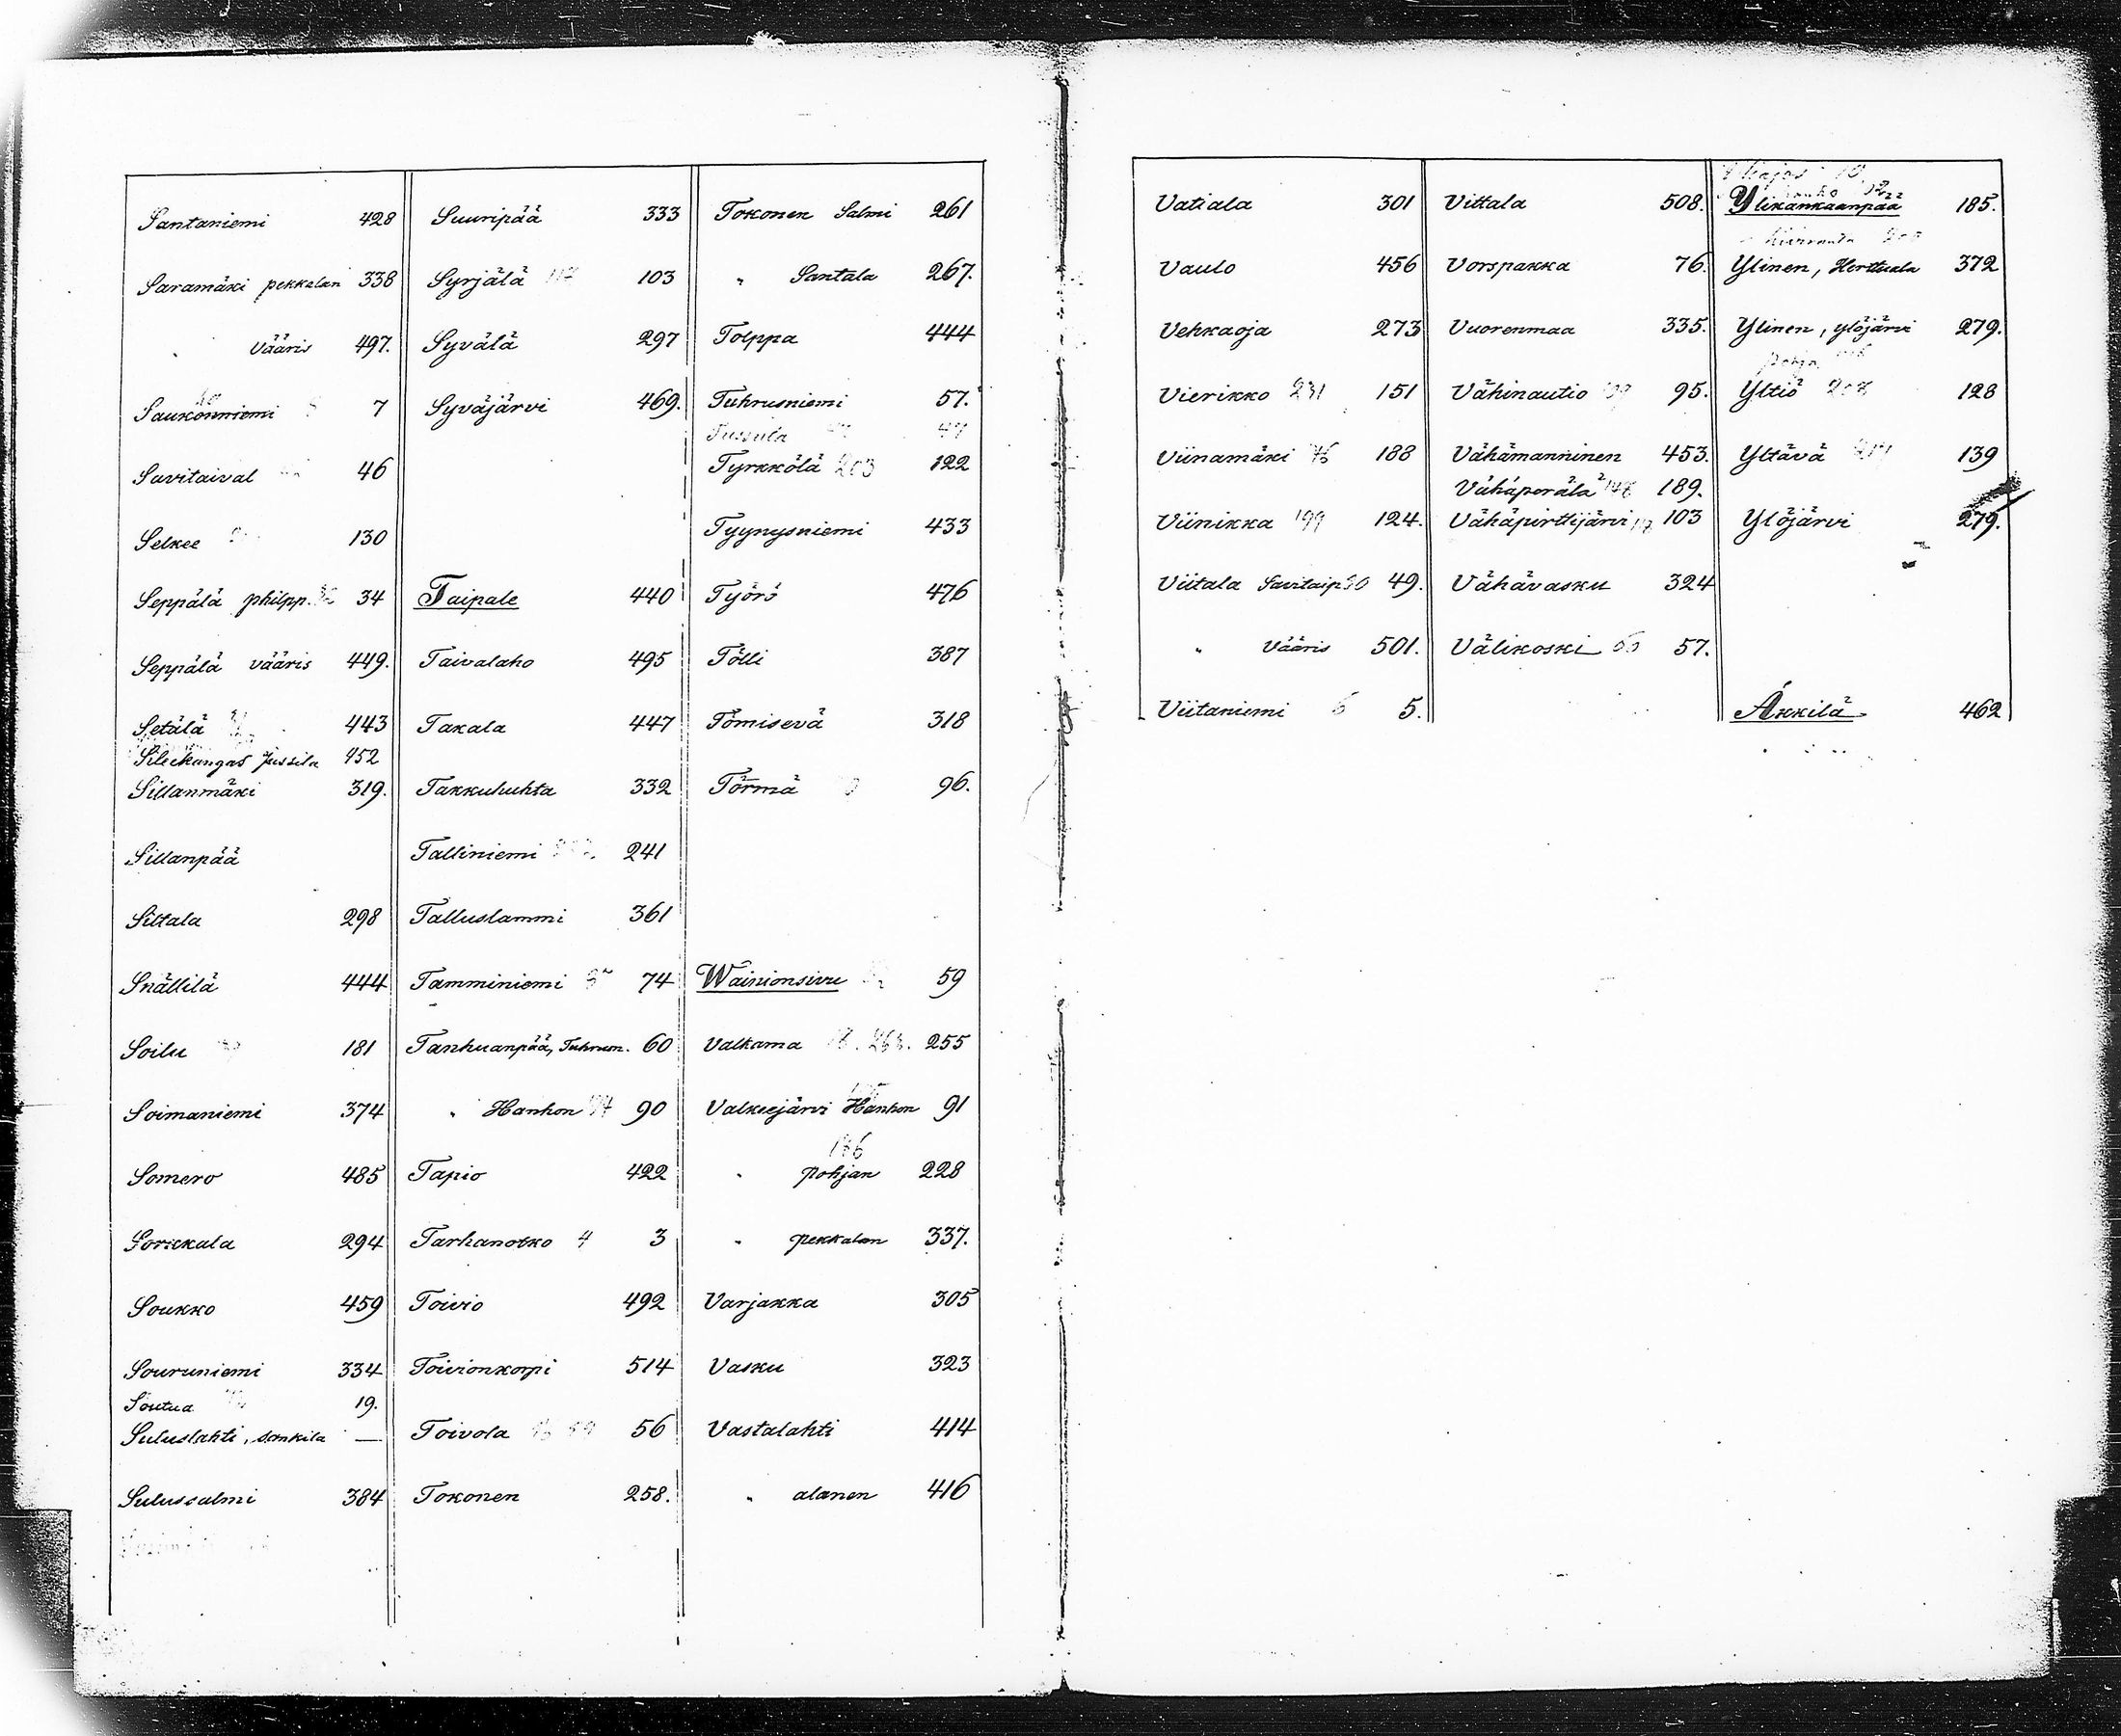 Santaniemi 428
Saramäki pekkalan 338
" vääris 497.
Saukonniemi 7
Savitaival 46
Selkee 130
Seppälä philpp. 34
Seppälä vääris 449.
Setälä 443
Sileekangas Jussila 452
Sillanmäki 319.
Sillanpää
Siltala 298
Snällilä 444
Soilu 181
Soimaniemi 374
Somero 485
Sorkkala 294
Soukko 459
Souruniemi 334
Soutua 19.
Suluslahti, sankila —
Sulussalmi 384
Suuripää 333
Syrjälä 103
Syvälä 297
Syväjärvi 469.
Taipale 440
Taivalaho 495
Takala 447
Takkuluhta 332
Talliniemi 241
Talluslammi 361
Tamminiemi 74
Tanhuanpää, Tuhrusn. 60
" Hanhon 90
Tapio 422
Tarhanotko 4 3
Toivio 492
Toivionkorpi 514
Toivola 56
Tokonen 258.
Tokonen Salmi 261
" Santala 267.
Tolppa 444
Tuhrusniemi 57.
Tyrkkölä 203 122
Tyynysniemi 433
Työrö 476
Tölli 387
Tömisevä 318
Törmä 96.
Wainionsivu 59
Valkama 255
Valkeejärvi Hanhon 91
186
" pohjan 228
" pekkalan 337.
Varjakka 305
Vasku 323
Vastalahti 414
" alanen 416
Vatiala 301
Vaulo 456
Vehkaoja 273
Vierikko 231 151
Viinamäki 188
Viinikka 199 124.
Viitala Savitaip. 50 49.
" vääris 501.
Viitaniemi 6 5.
Vittala 508.
Vorspakka 76.
Vuorenmaa 335.
Vähinautio 95.
Vähämanninen 453.
Vähäperälä 189.
Vähäpirttijärvi 103
Vähävasku 324
Välikoski 57.
Ylikankaanpää 185.
Ylinen, Herttuala 372
Ylinen, ylöjärvi 279.
Yltiö 208 128
Yltävä 139
Ylöjärvi 279.
Äkkilä 462